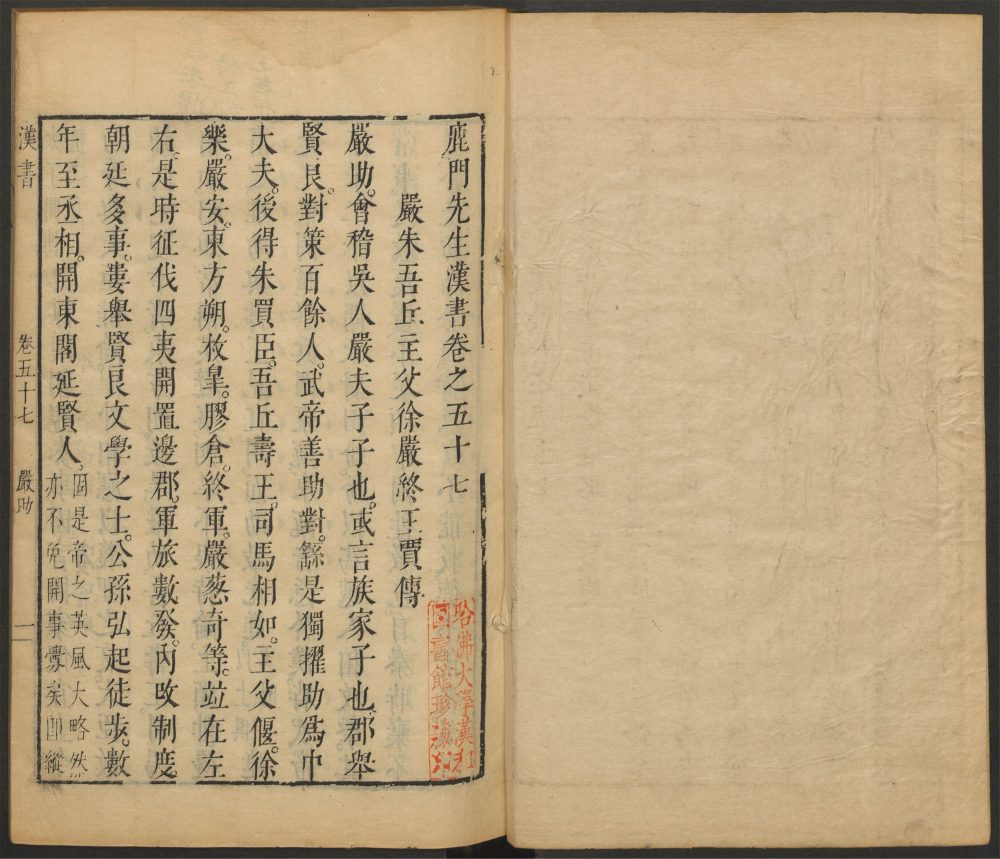 鹿門先生漢書卷之五十七
嚴朱吾丘主父徐嚴終王賈傳
哈佛大學漢和
圖書館珍藏印
嚴助。會稽吳人嚴夫子子也。或言族家子也郡舉
賢良。對策百餘人。武帝善助對。繇是獨擢助爲中
大夫。後得朱買臣。吾丘壽王。司馬相如。主父偃。徐
樂。嚴安。東方朔。枚臯。膠倉。終軍。嚴葱奇等。竝在左
右。是時征伐四夷開置邊郡。軍旅數發。內改制度。
朝廷多事。婁舉賢良文學之士。公孫弘起徒步。數
年至丞相。開東閣延賢人。
固是帝之英風大略然
亦不免開事釁矣即縱
漢書 卷五十七 嚴助 一